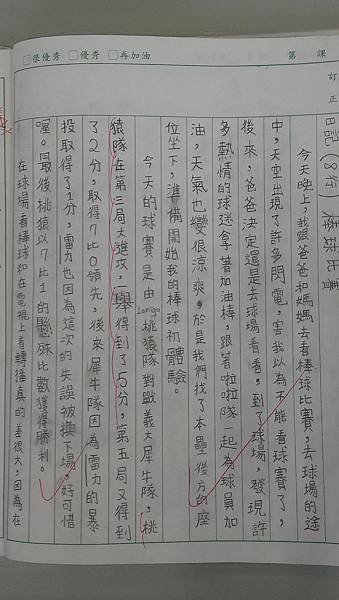 □很優秀 □優秀 □再加油
第 課
訂正
日記(8行) 棒球比賽
今天晚上,我跟爸爸和媽媽去看棒球比賽,去球場的途
中,天空出現了許多閃電,害我以為不能看球賽了,
後來,爸爸決定還是去球場看看,到了球場,發現許
多熱情的球迷拿著加油棒,跟著啦啦隊一起為球員加
油,天氣也變很涼爽,於是我們找了本壘後方的座
位坐下,準備開始我的棒球初體驗。
今天的球賽是由Lamigo桃猿隊對戰義大犀牛隊,桃
猿隊在第三局大進攻,一舉得到了5分,第五局又得到
了2分,取得7比0領先,後來犀牛隊因為雷力的暴
投取得了1分,雷力也因為這次的失誤被換下場,好可惜
喔。最後桃猿以7比1的懸殊比數獲得勝利。
在球場看棒球和在電視上看轉播真的差很大,因為在